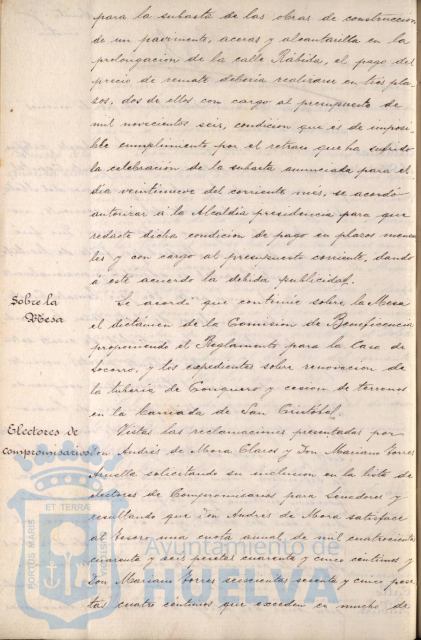 para la subasta de las obras de construccion
de un pavimento, aceras y alcantarilla en la
prolongación de la calle Rábida, el pago del
precio de remate debería realizarse en tres pla-
zos, dos de ellos con cargo al presupuesto de
mil novecientos seis, condicion que es de imposi-
ble cumplimiento por el retraso que ha sufrido
la celebración de la subasta anunciada para el
dia veintinueve del corriente mes, se acordó
autorizar á la Alcaldía presidencia para que
redacte dicha condicion de pago en plazos mensua-
les y con cargo al presupuesto corriente, dando
á este acuerdo la debida publicidad.
Sobre la
Mesa
Se acordó que continúe sobre la Mesa
el dictámen de la Comisión de Beneficencia
proponiendo el Reglamento para la Casa de
Socorro, y los expedientes sobre renovacion de
la tuberia de Conquero y cesion de terrenos
en la barriada de San Cristóbal.
Electores de
compromisarios
Vistas las reclamaciones presentadas por
Don Andrés de Mora Claros y Don Mariano Torres
solicitando su inclusion en la lista de
electores de Compromisarios para Senadores y
resultando que Don Andrés de Mora satisface
al Tesoro una cuota anual de mil cuatrocientas
cuarenta y seis pesetas cuarenta y cinco centimos y
Don Mariano Torres seiscientas sesenta y cinco pese-
tas cuatro céntimos que exceden en mucho de
PORTUS MARIS
ET TERRÆ
CUSTODIA
Ayuntamiento de
HUELVA